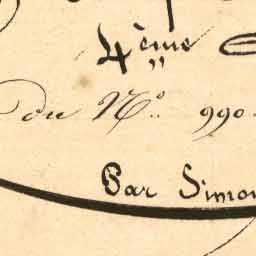 4ème
du No. 990
Par Simon